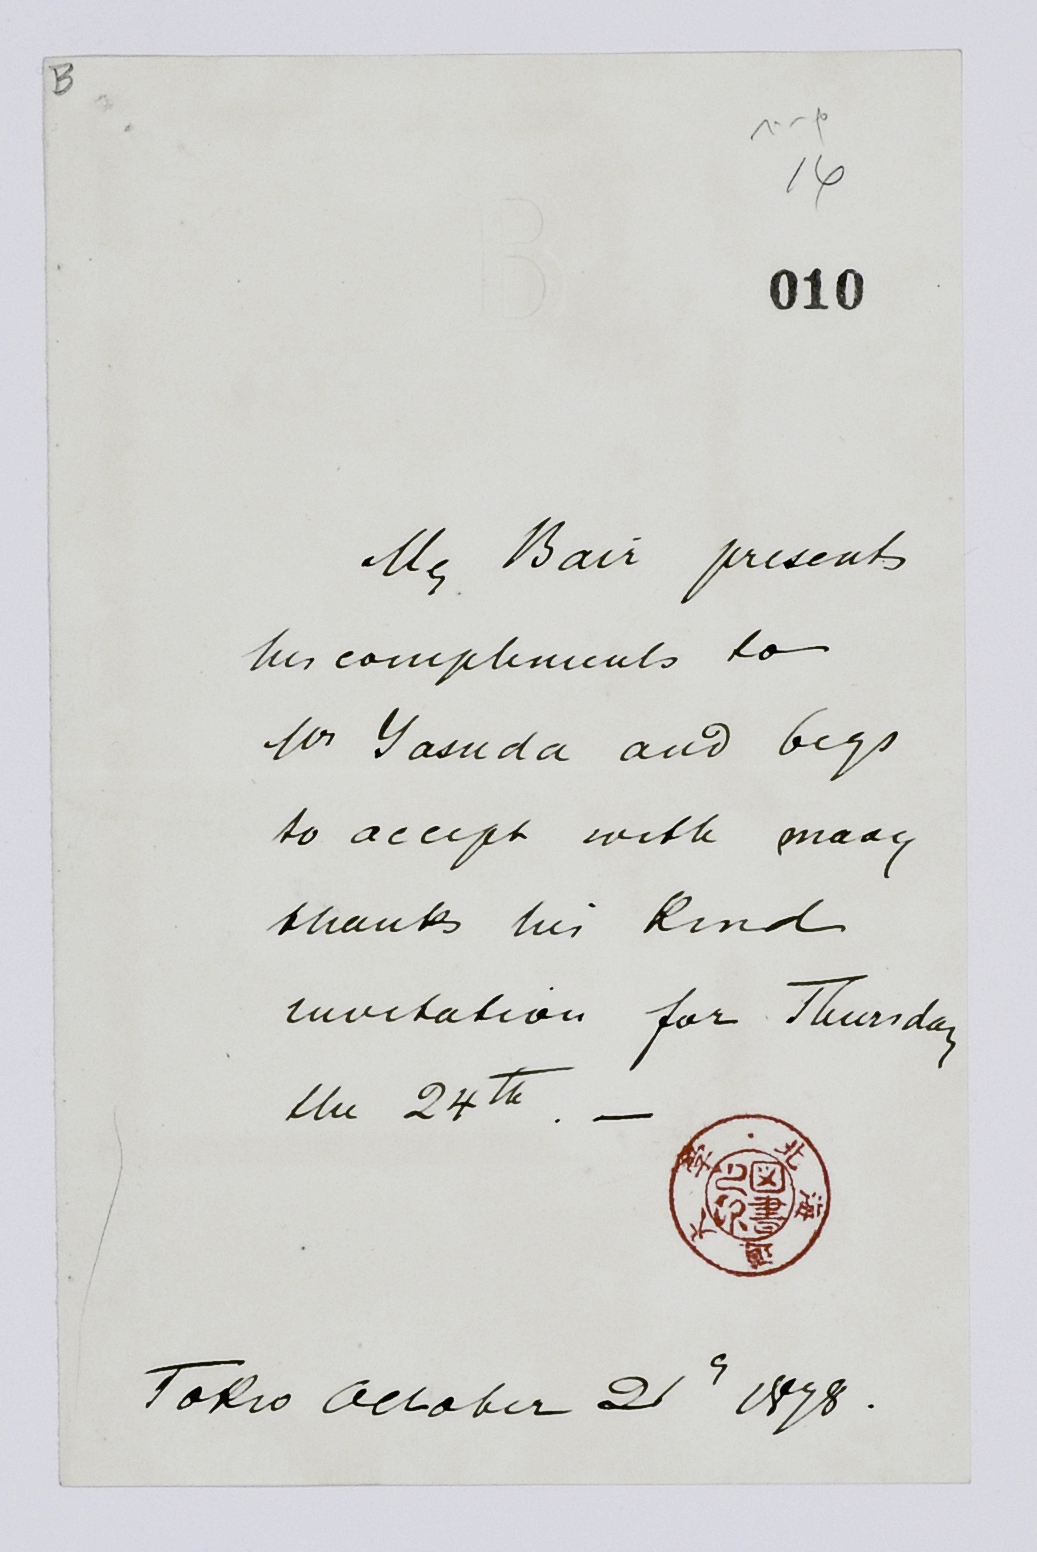 B
ベーヤ
14
010
B
Mr Bair presents
his compliments to
Mr Yasuda and begs
to accept with many
thanks his kind
invitation for Thursday
the 24th. —
北海道大学
図書
Tokio October 21 1878.